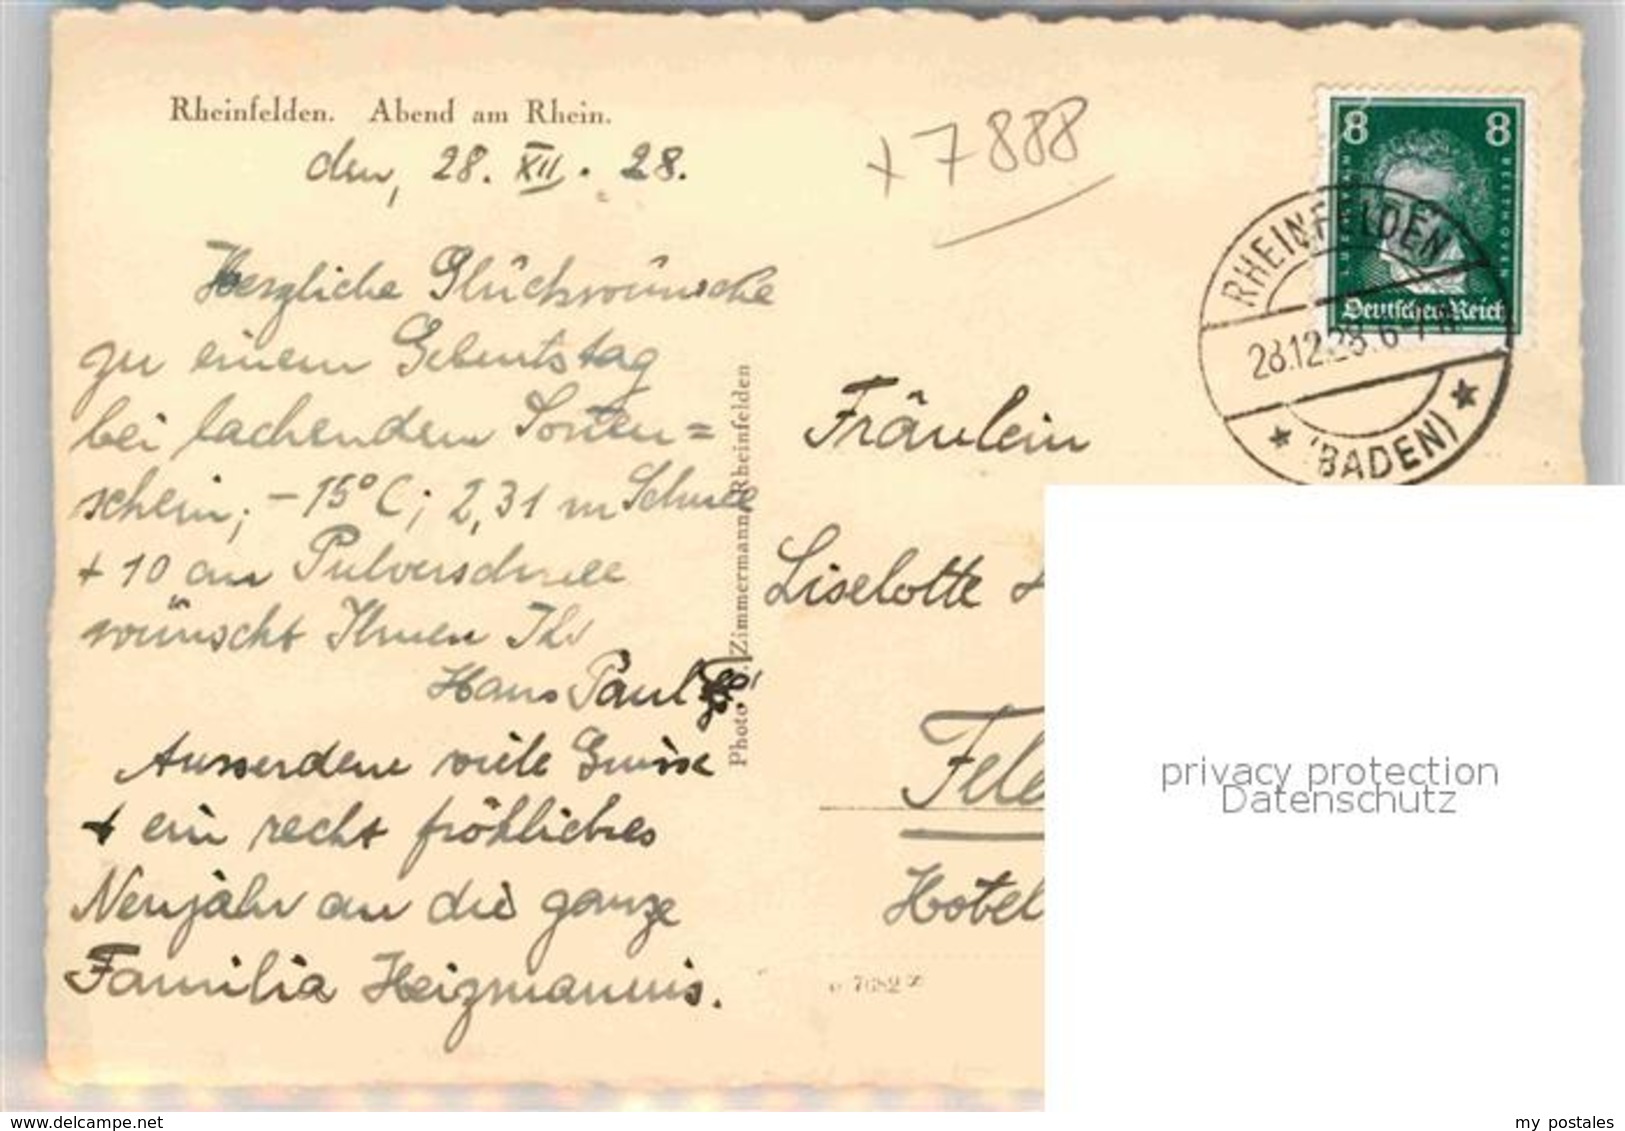 Rheinfelden. Abend am Rhein.
den, 28. XII. 28.
Herzliche Glückwünsche
zu einem Geburtstag
bei lachendem Sonnen=
schein; -15° C; 2,31 m Schnee
+ 10 cm Pulverschnee
wünscht Ihnen Ihr
Hans Paul
Ausserdem viele Grüsse
+ ein recht fröhliches
Neujahr an die ganze
Familia Heizmannis.
Photo Zimmermann, Rheinfelden
+ 7888
8 8
LUDWIG VAN
BEETHOVEN
Deutsches Reich
RHEINFELDEN
28.12.28. 6-7
(BADEN)
Fräulein
Liselotte
Feld
Hotel
7682
privacy protection
Datenschutz
ak-ansichtskarten.com
my postales